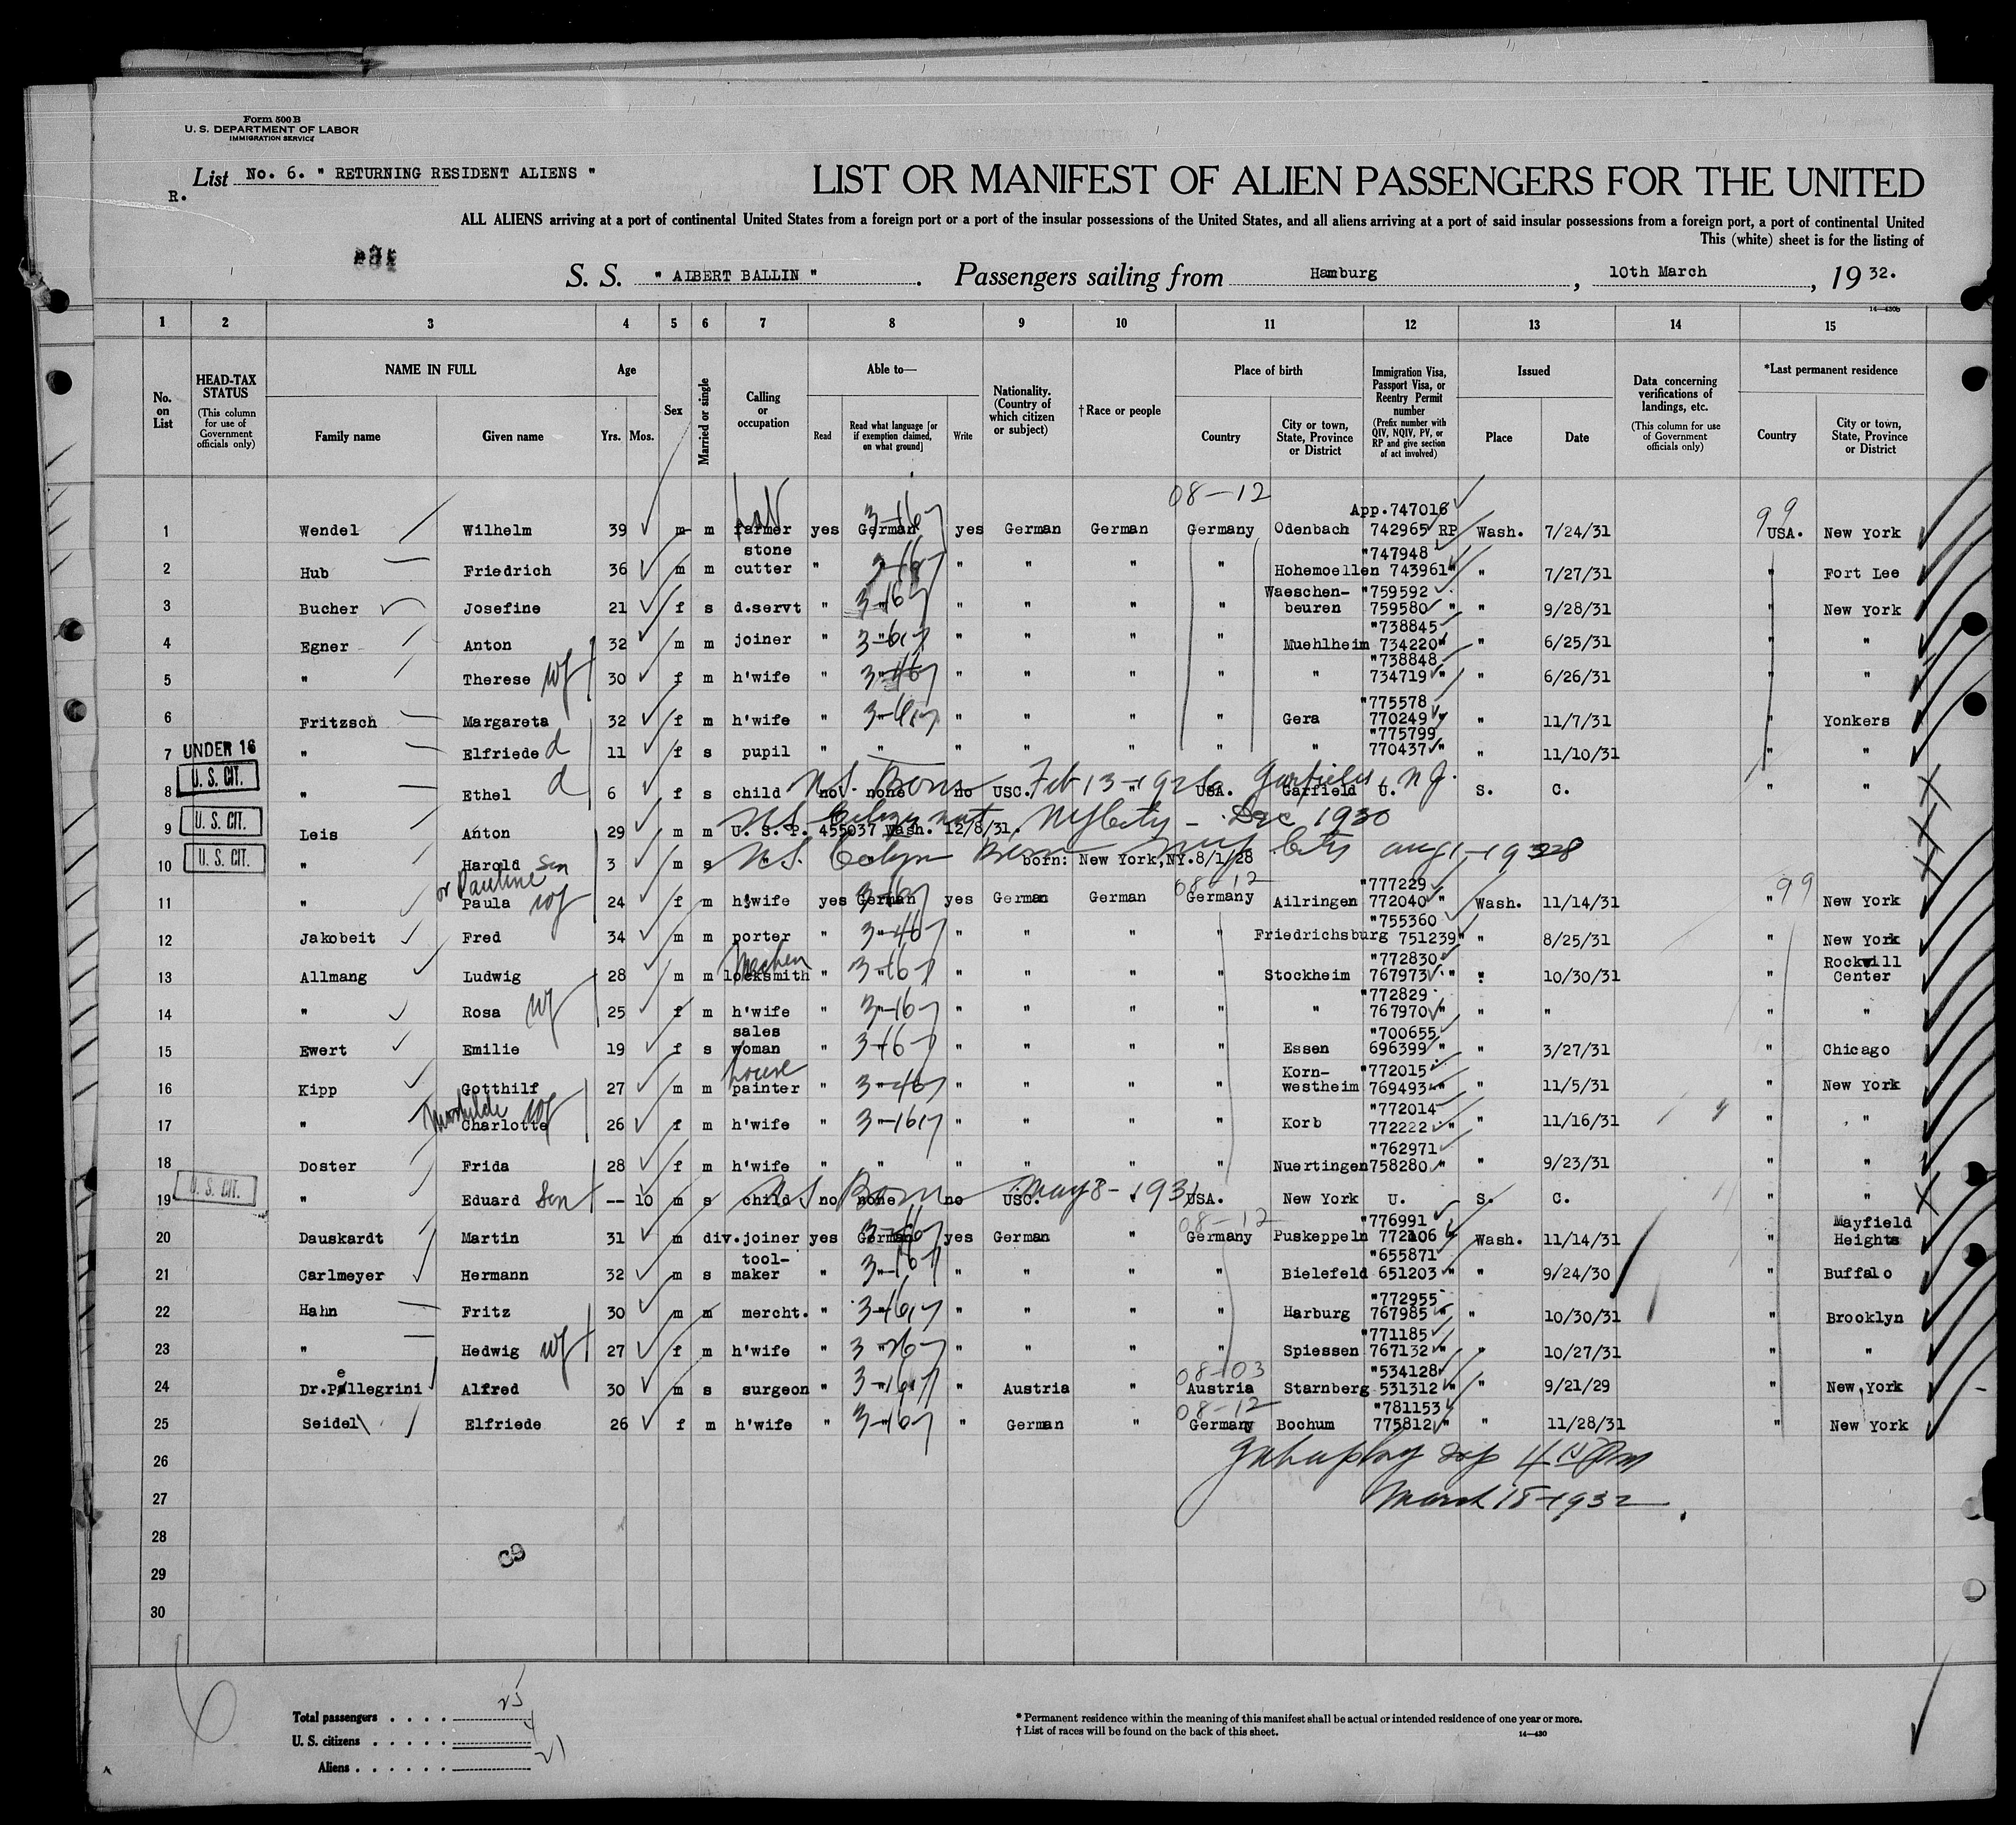 Form 500 B
U. S. DEPARTMENT OF LABOR
IMMIGRATION SERVICE
List No. 6. " RETURNING RESIDENT ALIENS "
R.
LIST OR MANIFEST OF ALIEN PASSENGERS FOR THE UNITED
ALL ALIENS arriving at a port of continental United States from a foreign port or a port of the insular possessions of the United States, and all aliens arriving at a port of said insular possessions from a foreign port, a port of continental United
This (white) sheet is for the listing of
S. S. " ALBERT BALLIN ". Passengers sailing from Hamburg, 10th March, 19 32.
14—430b
1 2 3 4 5 6 7 8 9 10 11 12 13 14 15
No. on List
HEAD-TAX STATUS (This column for use of Government officials only)
NAME IN FULL Family name Given name
Age Yrs. Mos.
Sex
Married or single
Calling or occupation
Able to— Read Read what language [or if exemption claimed, on what ground] Write
Nationality. (Country of which citizen or subject)
†Race or people
Place of birth Country City or town, State, Province or District
Immigration Visa, Passport Visa, or Reentry Permit number (Prefix number with QIV, NQIV, PV, or RP and give section of act involved)
Issued Place Date
Data concerning verifications of landings, etc. (This column for use of Government officials only)
*Last permanent residence Country City or town, State, Province or District
08-12
App.747016
1 Wendel Wilhelm 39 m m farmer yes German yes German German Germany Odenbach 742965 RP Wash. 7/24/31 99 USA. New York
stone "747948
2 Hub Friedrich 36 m m cutter " " " " " Hohemoellen 743961" " 7/27/31 " Fort Lee
Waeschen- "759592
3 Bucher Josefine 21 f s d.servt " " " " " " beuren 759580 " " 9/28/31 " New York
"738845
4 Egner Anton 32 m m joiner " " " " " " Muehlheim 734220" " 6/25/31 " "
"738848
5 " Therese wf 30 f m h'wife " " " " " " " 734719 " " 6/26/31 " "
"775578
6 Fritzsch Margareta 32 f m h'wife " " " " " Gera 770249 " " 11/7/31 " Yonkers
"775799
7 UNDER 16 " Elfriede d 11 f s pupil " " " " " " " 770437 " " 11/10/31 " "
U. S. CIT.
US. Born Feb 13-1926 Garfield N J.
8 " Ethel d 6 f s child no none no USC. " USA. Garfield U. S. C. " "
U. S. CIT.
NYCity - Dec 1930
9 Leis Anton 29 m m U. S. P. 455037 Wash. 12/8/31.
U. S. CIT.
10 " Harold son 3 m s born: New York,NY.8/1/28
or Pauline 08-12 "777229
11 " Paula wf 24 f m h'wife yes German yes German German Germany Ailringen 772040 " Wash. 11/14/31 " 99 New York
"755360
12 Jakobeit Fred 34 m m porter " " " " " " Friedrichsburg 751239" " 8/25/31 " New York
"772830 Rockvill
13 Allmang Ludwig 28 m m locksmith " " " " " " Stockheim 767973 " " 10/30/31 " Center
"772829
14 " Rosa wf 25 f m h'wife " " " " " " " 767970 " " " " "
sales "700655
15 Ewert Emilie 19 f s woman " " " " " " Essen 696399 " " 3/27/31 " Chicago
house Korn- "772015
16 Kipp Gotthilf 27 m m painter " " " " " " westheim 769493 " " 11/5/31 " New York
"772014
17 " Charlotte wf 26 f m h'wife " " " " " " Korb 772222 " " 11/16/31 " "
"762971
18 Doster Frida 28 f m h'wife " " " " " " Nuertingen 758280 " " 9/23/31 " "
U. S. CIT.
US Born May 8-1931
19 " Eduard Son -- 10 m s child no none no USC. " USA. New York U. S. C. " "
08-12 "776991 Mayfield
20 Dauskardt Martin 31 m div. joiner yes German yes German " Germany Puskeppeln 772106 " Wash. 11/14/31 " Heights
tool- "655871
21 Carlmeyer Hermann 32 m s maker " " " " " " Bielefeld 651203 " " 9/24/30 " Buffalo
"772955
22 Hahn Fritz 30 m m mercht. " " " " " " Harburg 767985 " " 10/30/31 " Brooklyn
"771185
23 " Hedwig wf 27 f m h'wife " " " " " " Spiessen 767132 " " 10/27/31 " "
e 08-03 "534128
24 Dr.Pellegrini Alfred 30 m s surgeon " " " Austria " Austria Starnberg 531312 " " 9/21/29 " New York
08-12 "781153
25 Seidel Elfriede 26 f m h'wife " " " German " Germany Bochum 775812 " " 11/28/31 " New York
26
27 March 18-1932
28
29
30
6
Total passengers . . . . 25
U. S. citizens . . . . . 4
Aliens . . . . . . 21
* Permanent residence within the meaning of this manifest shall be actual or intended residence of one year or more.
† List of races will be found on the back of this sheet. 14—430